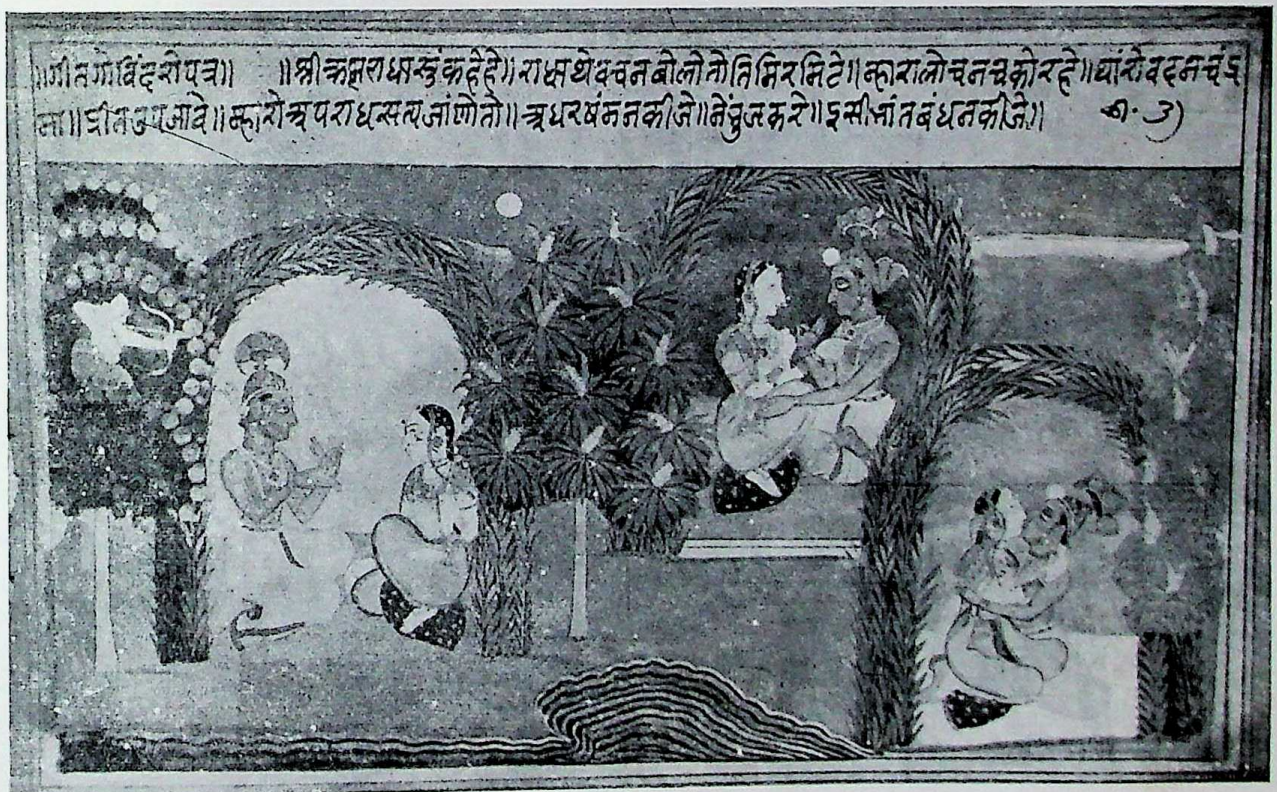 ॥गीतगोविंदरोपत्र॥ ॥श्रीकृष्णराधास्तुंकहेहे॥राधाथेवचनबोलोतोतिमिरमिटे॥म्हारालोचनचकोरहे॥थांरोवदनचंद्र
मा॥प्रीतउपजावे॥म्हारोअपराधसत्यजांणोतो॥अधरषंमनकीजे॥नेभुजकरे॥इसीभांतबंधनकीजे॥